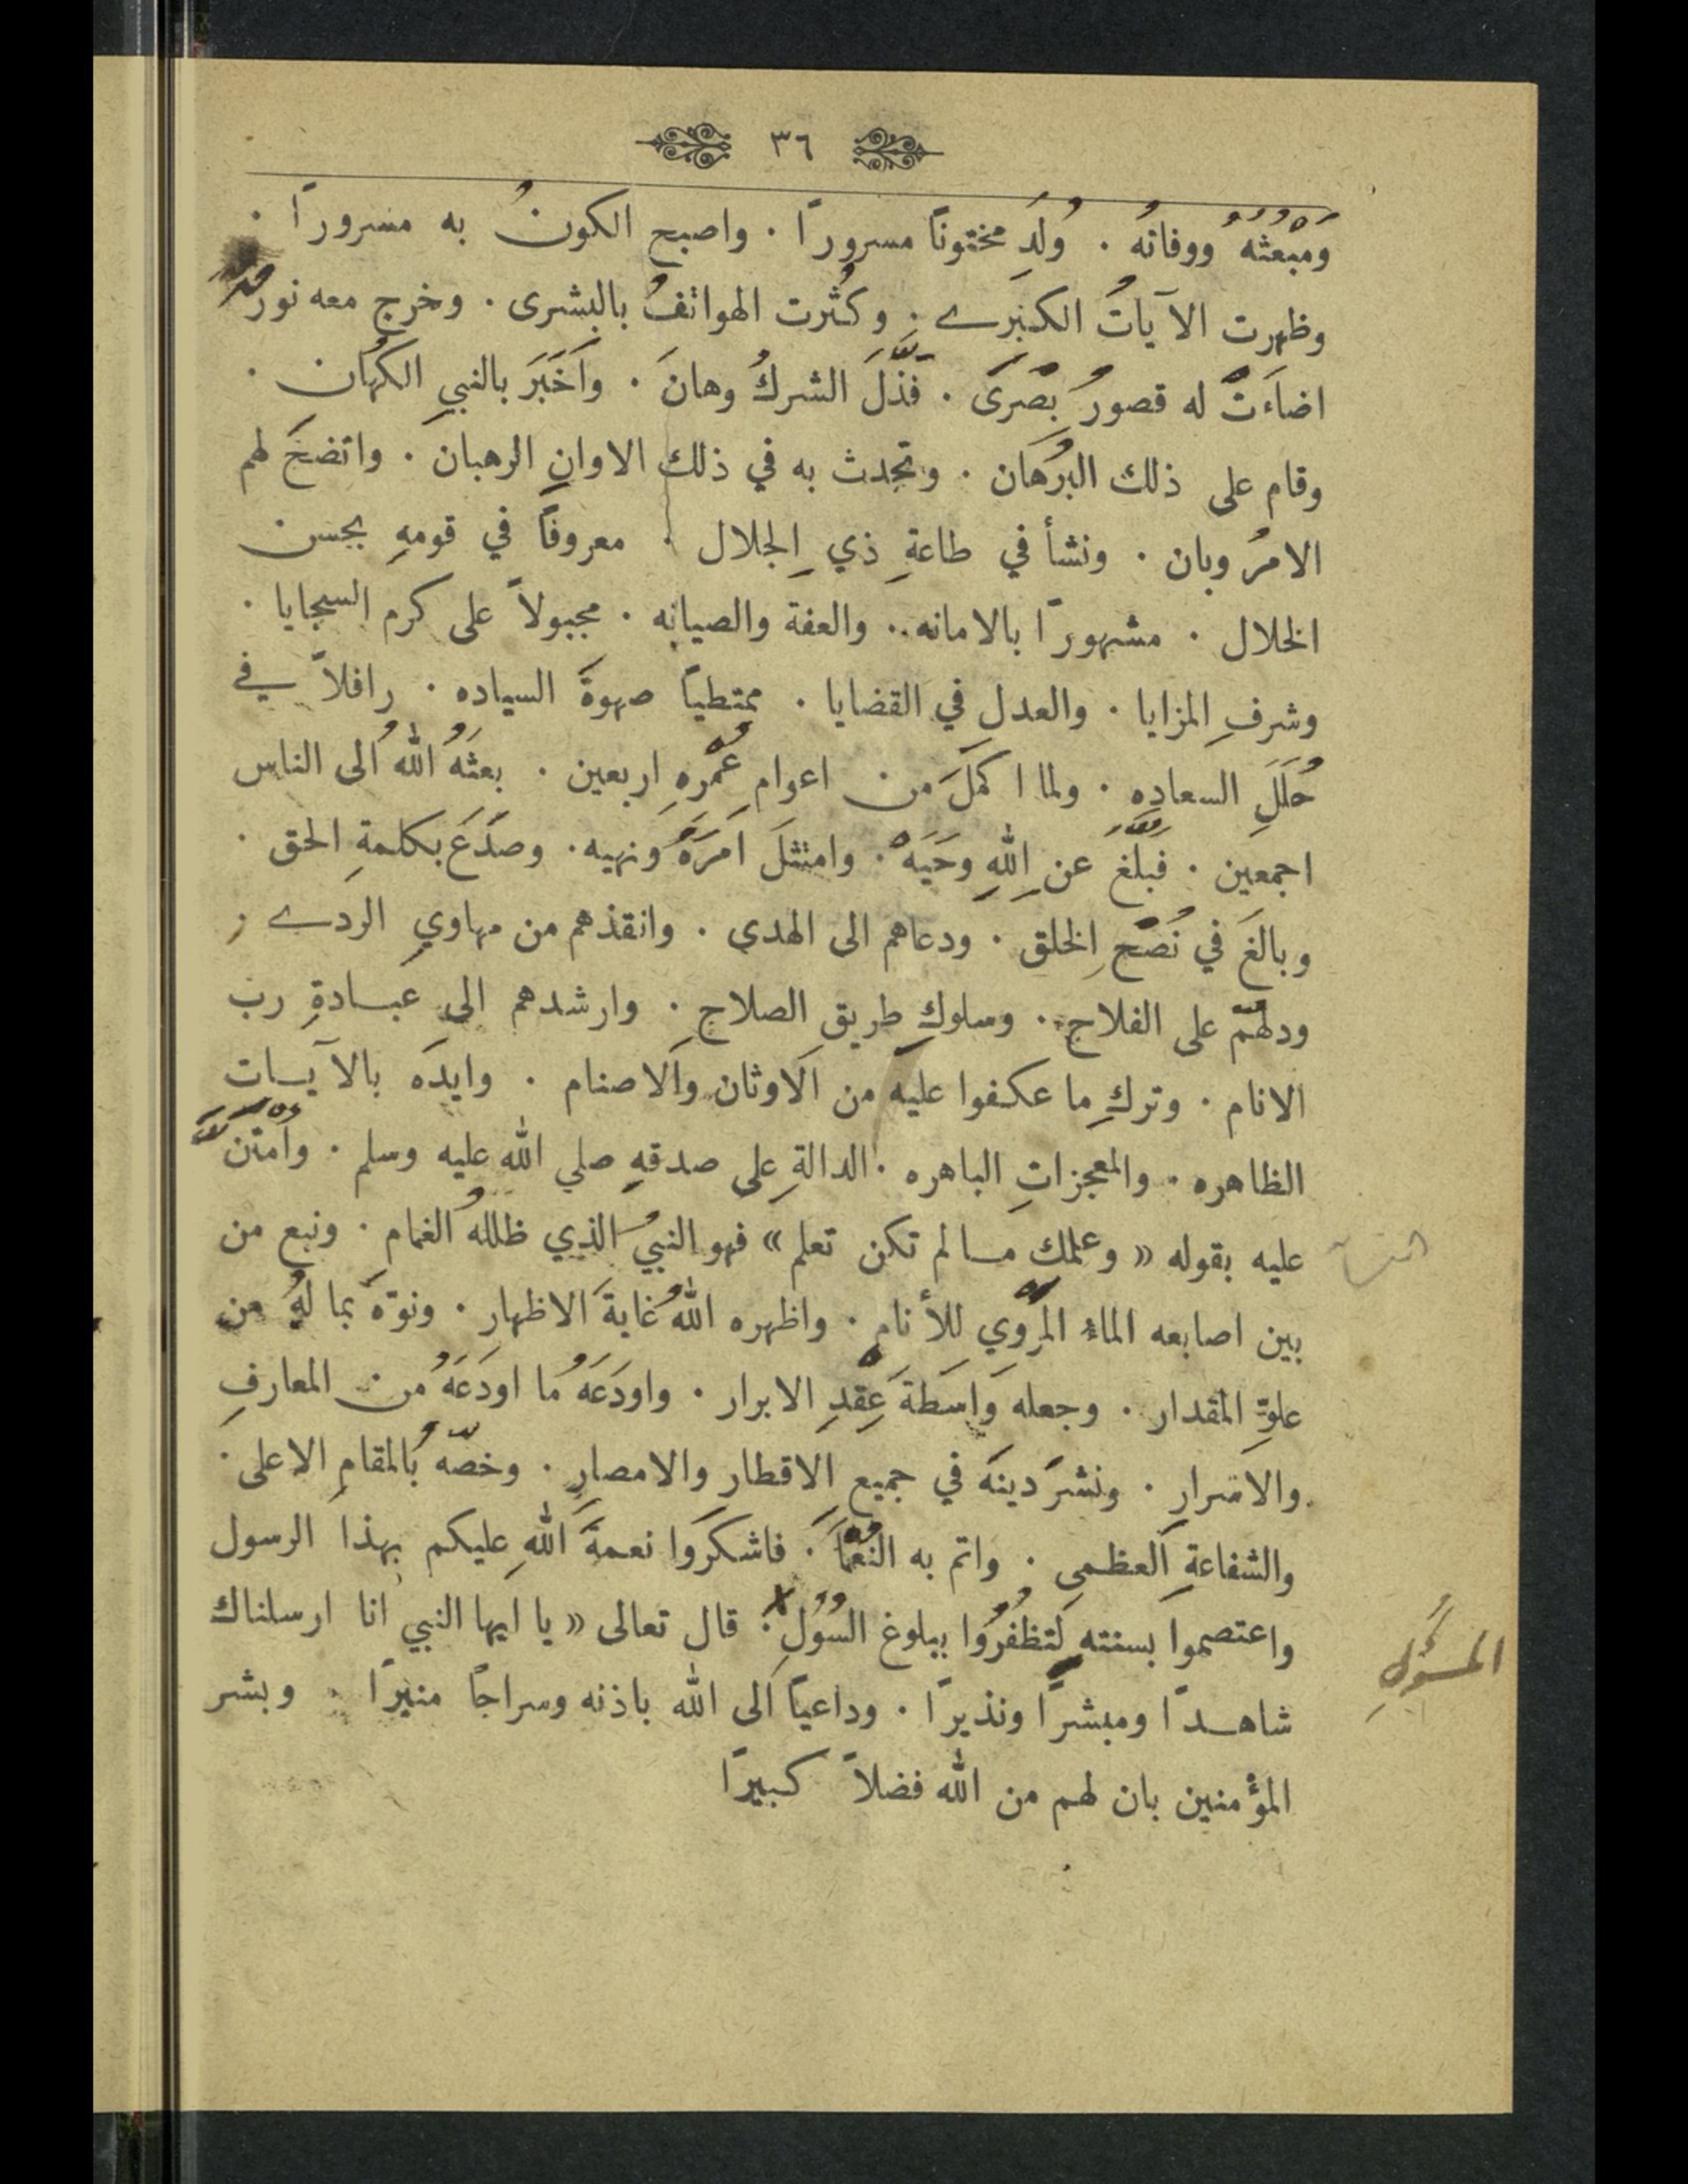 ٣٦
ومبعثه ووفاته . وُلِدَ مختونًا مسرورًا . واصبح الكونُ به مسرورًا .
وظهرت الآياتُ الكبرے . وكثرت الهواتفُ بالبشرى . وخرج معه نور
اضاءَتْ له قصورُ بصرى . فذلَّ الشركُ وهانَ . واَخبَرَ بالنبيِ الكهان .
وقام على ذلك البُرهان . وتحدث به في ذلك الاوانِ الرهبان . واتضحَ لهم
الامرُ وبان . ونشأ في طاعةِ ذي الجلال . معروفًا في قومهِ بحسن
الخلال . مشهورًا بالامانه . والعفة والصيانه . مجبولاً على كرم السجايا .
وشرفِ المزايا . والعدلِ في القضايا . ممتطيًا صهوةَ السياده . رافلاً في
حُلَلِ السعاده . ولما اكملَ من اعوام عُمْرِهِ اربعين . بعثَهُ اللهُ الى الناس
اجمعين . فبلَّغ عن اللهِ وحيَهْ . وامتثلَ امرَهُ ونهيه . وصدَعَ بكلمةِ الحق .
وبالغَ في نُصْحِ الخلق . ودعاهم الى الهدى . وانقذهم من مهاوي الردے .
ودلهمّ على الفلاح . وسلوكِ طريق الصلاح . وارشدهم الى عبادةِ رب
الانام . وتركِ ما عكفوا عليه من الاَوثان والاَصنام . وايدَه بالآيات
الظاهره . والمعجزاتِ الباهره . الدالةِ على صدقهِ صلي الله عليه وسلم . وامتنَّ
عليه بقوله « وعلمك ما لم تكن تعلم » فهو النبيُ الذي ظللهُ الغمام . ونبع من
بين اصابعه الماءُ المرْوي للأنام . واظهره اللهُ غايةَ الاظهارِ . ونوّهَ بما لهُ من
علوِّ المقدار . وجعله واسَطةَ عِقْدِ الابرار . واودَعَهُ ما اودَعَهُ من المعارفِ
والاسرارِ . ونشرَ دينَه في جميع الاقطار والامصارِ . وخصّهُ بالمقامِ الاعلى .
والشفاعةِ العظمى . واتم به النُعْمَا . فاشكرَوا نعمةَ اللهِ عليكم بهذا الرسول
واعتصموا بسنته لتظفُرُوا ببلوغ السُوُلِ . قال تعالى « يا ايها النبي انا ارسلناك
المسؤُلِ
شاهدًا ومبشرًا ونذيرًا . وداعيًا الى الله باذنه وسراجًا منيرًا . وبشر
المؤمنين بان لهم من الله فضلاً كبيرًا